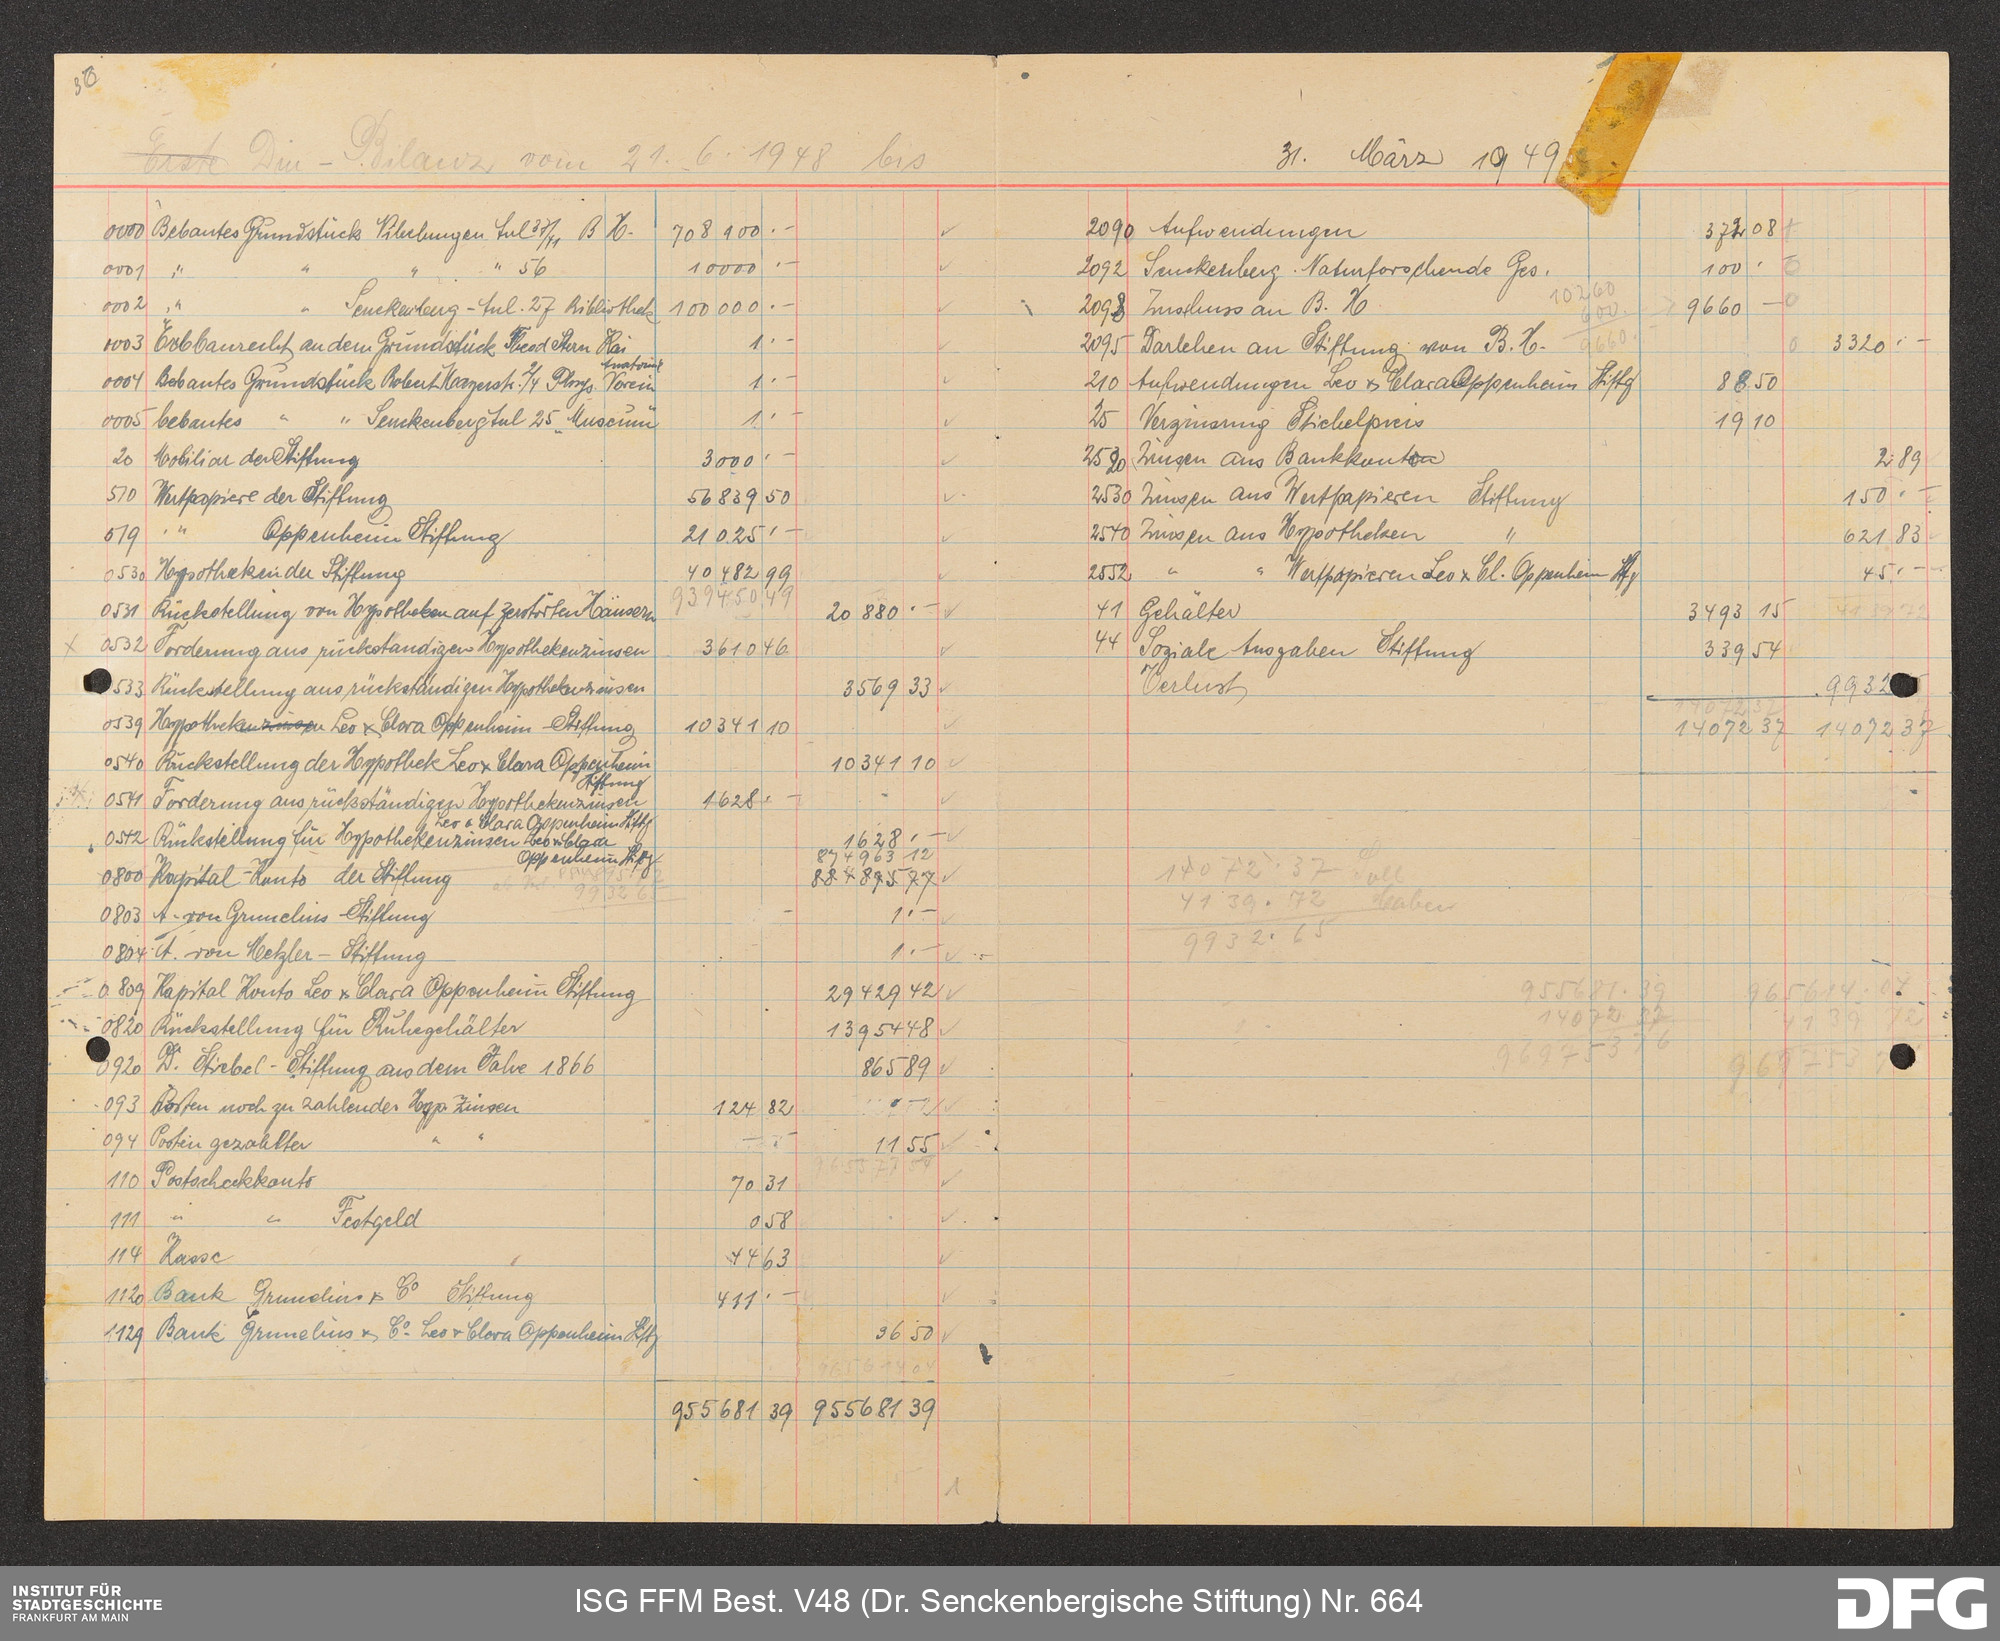 30
Erste Dm - Bilanz vom 21. 6. 1948 bis 31. März 1949
0000 Bebautes Grundstück Nibelungen Aul 37/41 B H. 708 100.-
0001 " " " " 56 10000.-
0002 " " Senckenberg - Anl. 27 Bibliothek 100 000.-
0003 Erbbaurecht an dem Grundstück Theod Stern Kai 1.-
Anatomie
0004 Bebautes Grundstück Robert Mayerstr. 2/4 Phys. Verein 1.-
0005 bebautes " " Senckenberg Anl 25 Museum 1.-
20 Mobiliar der Stiftung 3000.-
510 Wertpapiere der Stiftung 56839 50
519 " " Oppenheim Stiftung 21 025.-
0530 Hypotheken der Stiftung 40 482 99
939450 49
0531 Rückstellung von Hypotheken auf zerstörten Häusern 20 880.-
0532 Forderung aus rückständigen Hypothekenzinsen 3610 46
0533 Rückstellung aus rückständigen Hypothekenzinsen 3569 33
0539 Hypothekenzinsen Leo & Clara Oppenheim - Stiftung 10341 10
0540 Rückstellung der Hypothek Leo & Clara Oppenheim 10341 10
Stiftung
0541 Forderung aus rückständigen Hypothekenzinsen 1628.-
Leo & Clara Oppenheim Stiftg
0542 Rückstellung für Hypothekenzinsen Leo & Clara 1628.-
Oppenheim Stiftg 874963 12
0800 Kapital - Konto der Stiftung 884895 77
9932 65
0803 A. von Grunelius - Stiftung 1.-
0804 A. von Metzler - Stiftung 1.-
0809 Kapital Konto Leo & Clara Oppenheim Stiftung 29429 42
0820 Rückstellung für Ruhegehälter 13954 48
0920 Dr. Stiebel - Stiftung aus dem Jahre 1866 865 89
093 Posten noch zu zahlender Hyp. Zinsen 124 82
094 Posten gezahlter " " 11 55
110 Postscheckkonto 70 31
111 " " Festgeld 0 58
114 Kasse 44 63
1120 Bank Grunelius & Co Stiftung 411.-
1129 Bank Grunelius & Co. Leo & Clara Oppenheim Stftg 36 50
965614 04
955681 39 955681 39
1
2090 Aufwendungen 372 08
2092 Senckenberg. Naturforschende Ges. 100.-
10260
600.
9660.-
2093 Zuschuss an B. H. 9660 -
2095 Darlehen an Stiftung von B. H. 3320.-
210 Aufwendungen Leo & Clara Oppenheim Stiftg 88 50
25 Verzinsung Stiebelpreis 19 10
2520 Zinsen aus Bankkonten 2 89
2530 Zinsen aus Wertpapieren Stiftung 150.-
2540 Zinsen aus Hypotheken " 621 83
2552 " " Wertpapieren Leo & Cl. Oppenheim Stftg 45.-
41 Gehälter 3493 15 4139 72
44 Soziale Ausgaben Stiftung 339 54
Verlust 9932
14072 37
14072 37 14072 37
14072.37 Soll
4139.72 Haben
9932.65
955681.39 965614.04
14072.37 4139 72
969753 76 969753
INSTITUT FÜR
STADTGESCHICHTE
FRANKFURT AM MAIN
ISG FFM Best. V48 (Dr. Senckenbergische Stiftung) Nr. 664
DFG